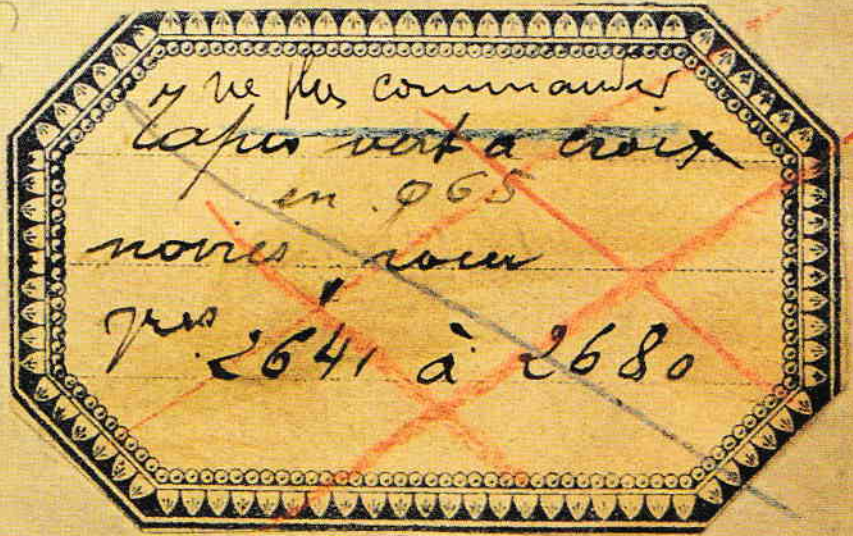 y ne plus commander
Tapis vert à croix
en 965
noires
2641 à 2680